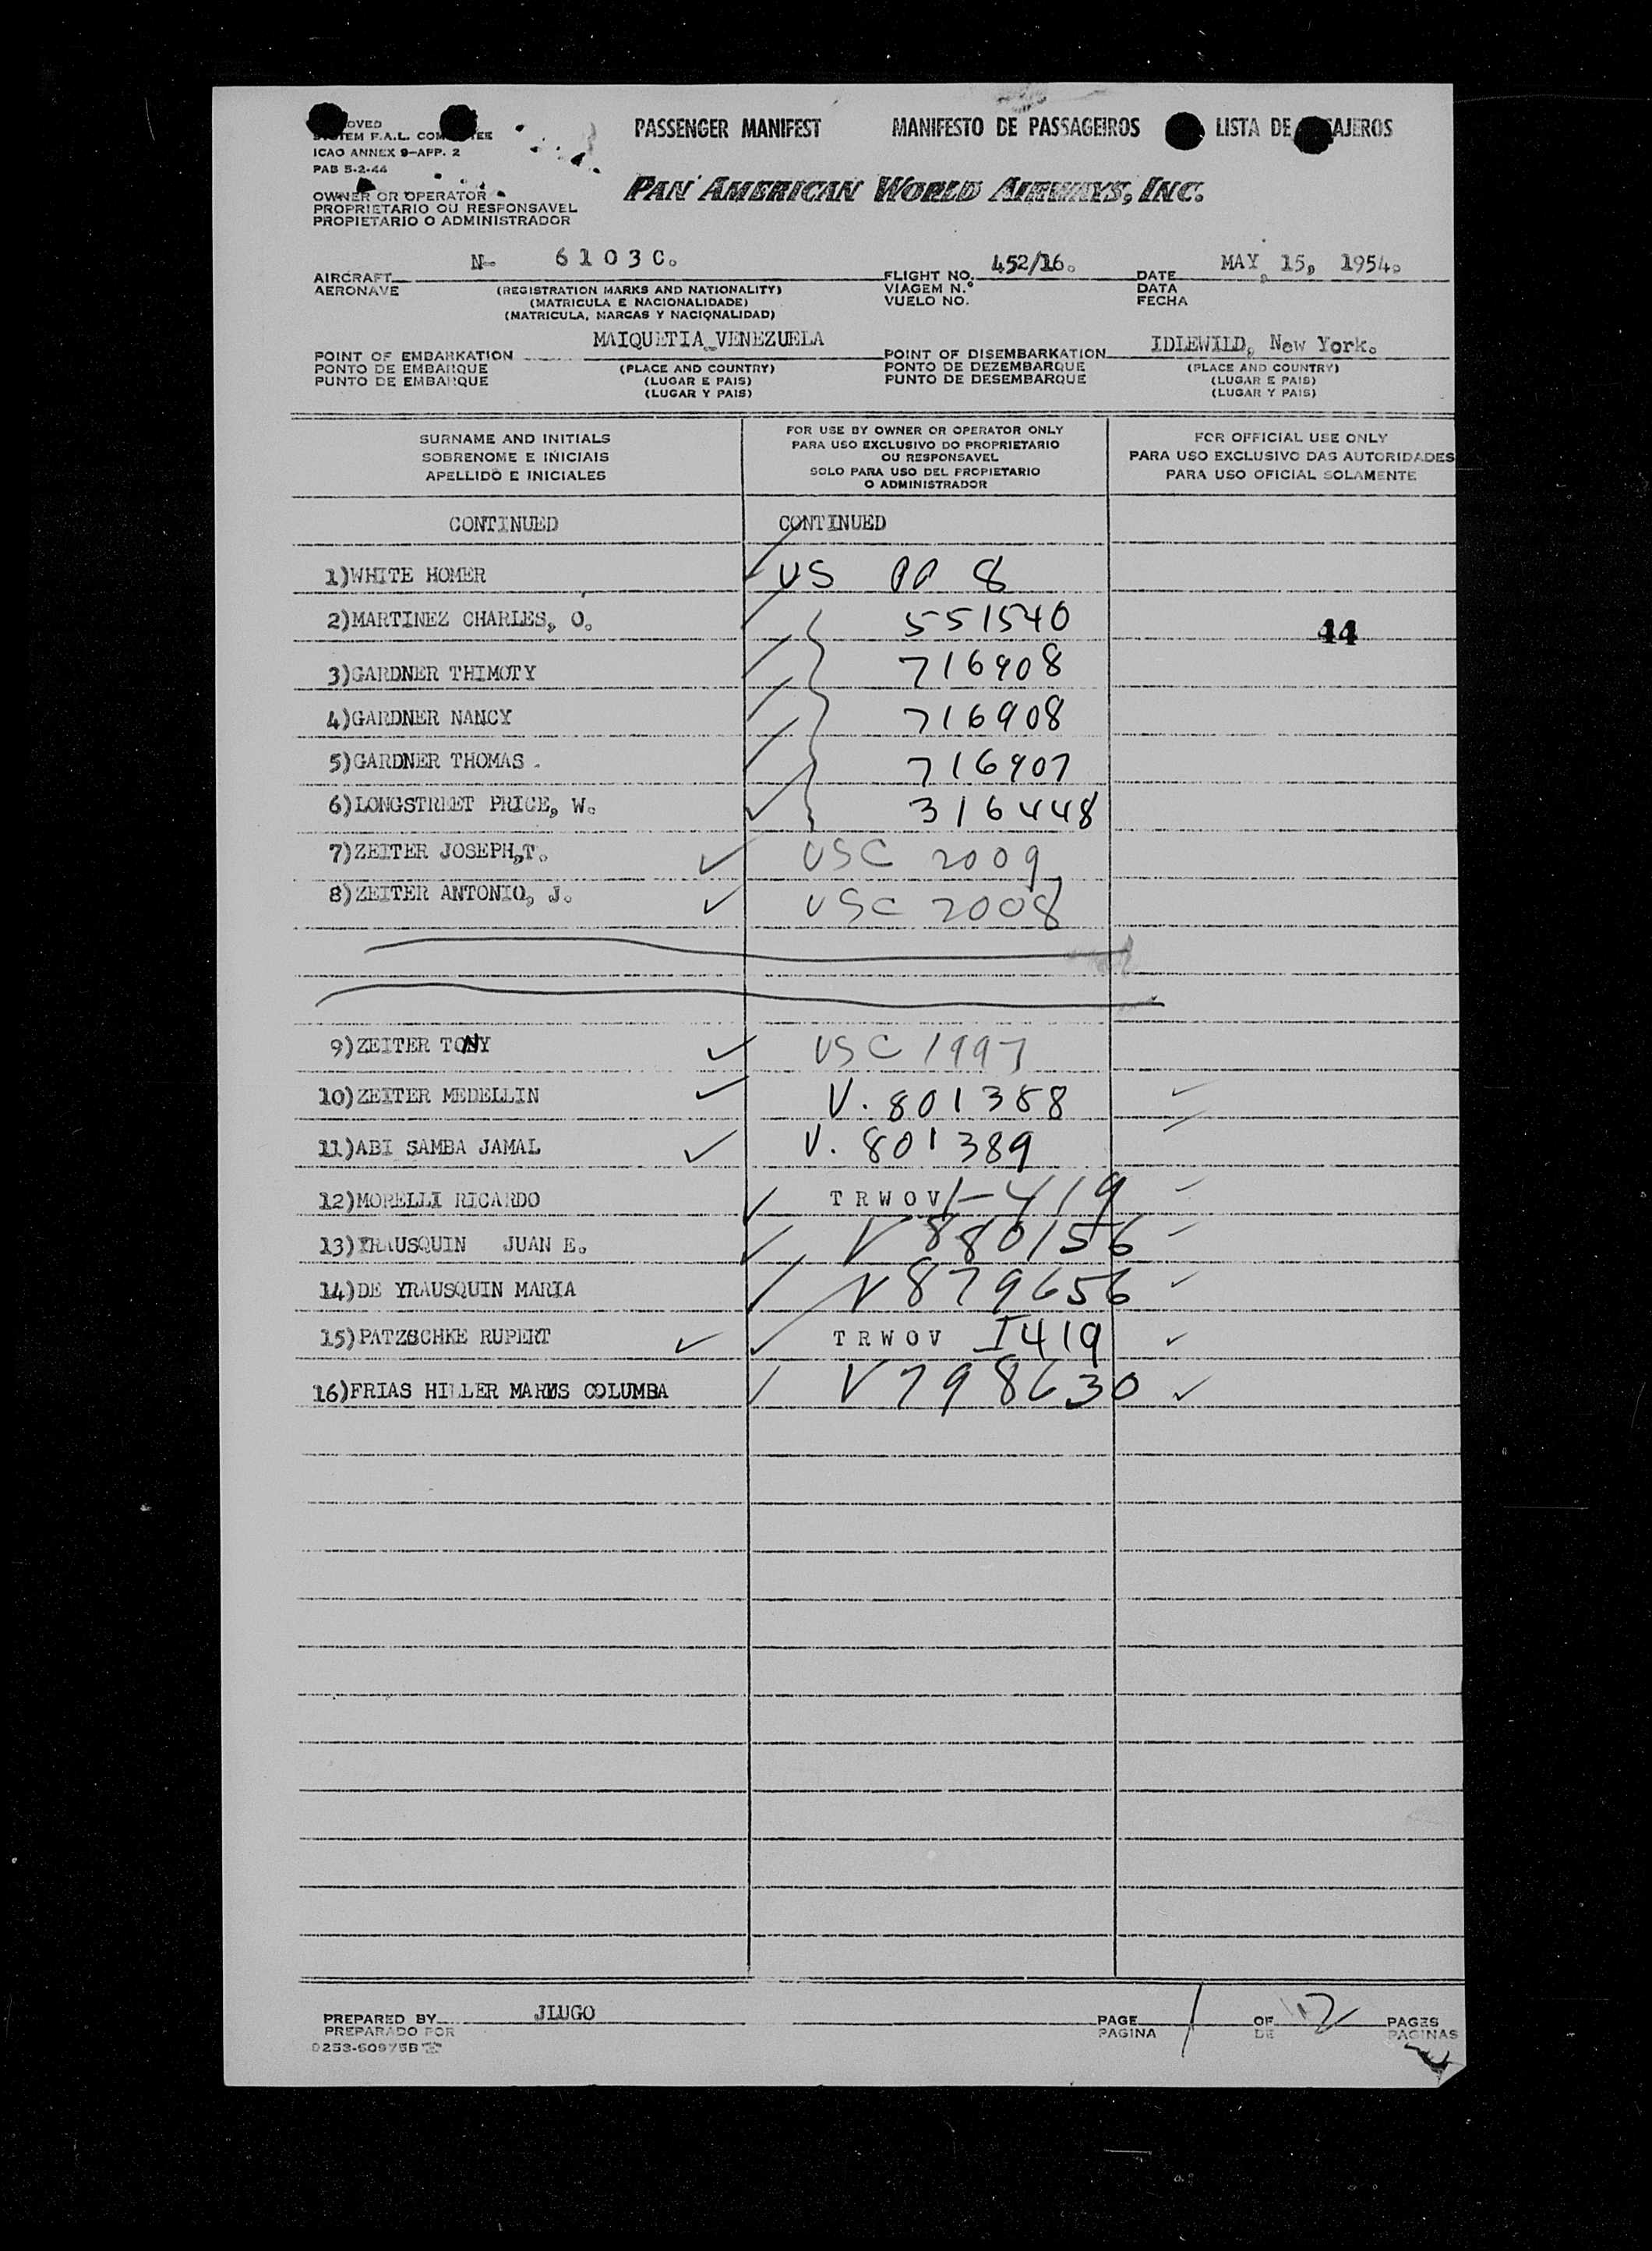 PASSENGER MANIFEST MANIFESTO DE PASSAGEIROS LISTA DE
ICAO ANNEX 9-APP. 2
PAB 5-2-44
PAN AMERICAN WORLD AIRWAYS, INC.
OWNER OR OPERATOR
PROPRIETARIO OU RESPONSAVEL
PROPIETARIO O ADMINISTRADOR
AIRCRAFT N- 6103C. FLIGHT NO. 452/16. DATE MAY 15, 1954.
AERONAVE (REGISTRATION MARKS AND NATIONALITY) VIAGEM N.º DATA
(MATRICULA E NACIONALIDADE) VUELO NO. FECHA
(MATRICULA, MARCAS Y NACIONALIDAD)
POINT OF EMBARKATION MAIQUETIA VENEZUELA POINT OF DISEMBARKATION IDLEWILD, New York.
PONTO DE EMBARQUE (PLACE AND COUNTRY) PONTO DE DEZEMBARQUE (PLACE AND COUNTRY)
PUNTO DE EMBARQUE (LUGAR E PAIS) PUNTO DE DESEMBARQUE (LUGAR E PAIS)
(LUGAR Y PAIS) (LUGAR Y PAIS)
SURNAME AND INITIALS
SOBRENOME E INICIAIS
APELLIDO E INICIALES
FOR USE BY OWNER OR OPERATOR ONLY
PARA USO EXCLUSIVO DO PROPRIETARIO
OU RESPONSAVEL
SOLO PARA USO DEL PROPIETARIO
O ADMINISTRADOR
FOR OFFICIAL USE ONLY
PARA USO EXCLUSIVO DAS AUTORIDADES
PARA USO OFICIAL SOLAMENTE
CONTINUED CONTINUED
1)WHITE HOMER US PP 8
2)MARTINEZ CHARLES, O. 551540
44
3)GARDNER THIMOTY 716908
4)GARDNER NANCY 716908
5)GARDNER THOMAS 716907
6)LONGSTREET PRICE, W. 316448
7)ZEITER JOSEPH,T. USC 2009
8)ZEITER ANTONIO, J. USC 2008
9)ZEITER TONY USC 1997
10)ZEITER MEDELLIN V. 801388
11)ABI SAMBA JAMAL V. 801389
12)MORELLI RICARDO TRWOV I-419
13)YRAUSQUIN JUAN E. V 880156
14)DE YRAUSQUIN MARIA V 879656
15)PATZSCHKE RUPERT TRWOV I419
16)FRIAS HILLER COLUMBA V798630
PREPARED BY JLUGO PAGE 1 OF 2 PAGES
PREPARADO POR PAGINA DE PAGINAS